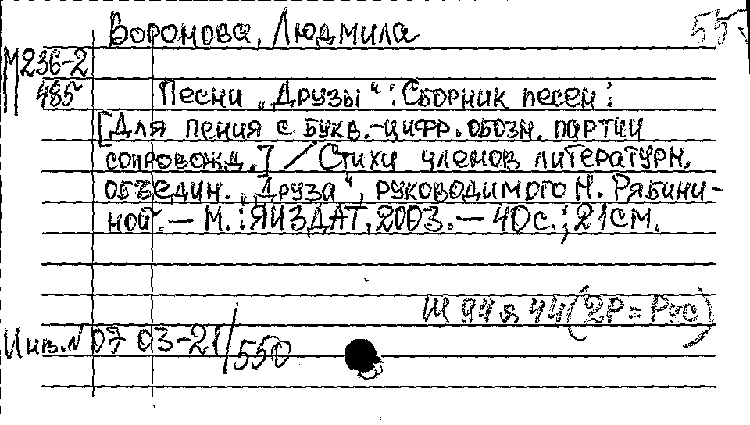 Воронова, Людмила
55
М236-2
485
Песни „Друзы“: Сборник песен:
[Для пения с букв.-цифр. обозн. партии
сопровожд.] / Стихи членов литературн.
объедин. „Друза“, руководимого Н. Рябини-
ной. — М.: ЯИЗДАТ, 2003. — 40 с.; 21 см.
Щ 94 я 44 (2Р = Рус)
Инв. № 07 03-21/550